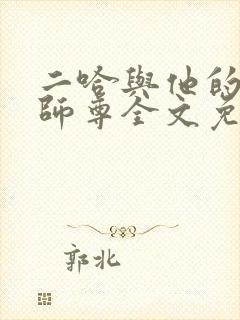 二哈與他的
師尊全文免
郭北